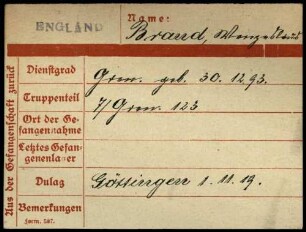 ENGLAND
Name:
Brand,
Aus der Gefangenschaft zurück
Dienstgrad
Gren. geb. 30.12.93.
Truppenteil
7/Gren. 123
Ort der Ge-
fangennahme
Letztes Gefan-
genenlager
Dulag
Göttingen 1.11.19.
Bemerkungen
Form. 587.